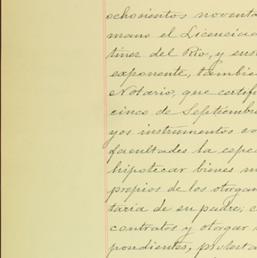 ochocientos noventa
mano el Licenciad
tinez del Rio, y ens
exponente, tambie
Notario, que certif
cinco de Septiembr
yos instrumentos co
facultades la espe
hipotecar bienes m
propios de los otorgan
taria de su padre, c
contratos y otorgar
pondientes, protesta